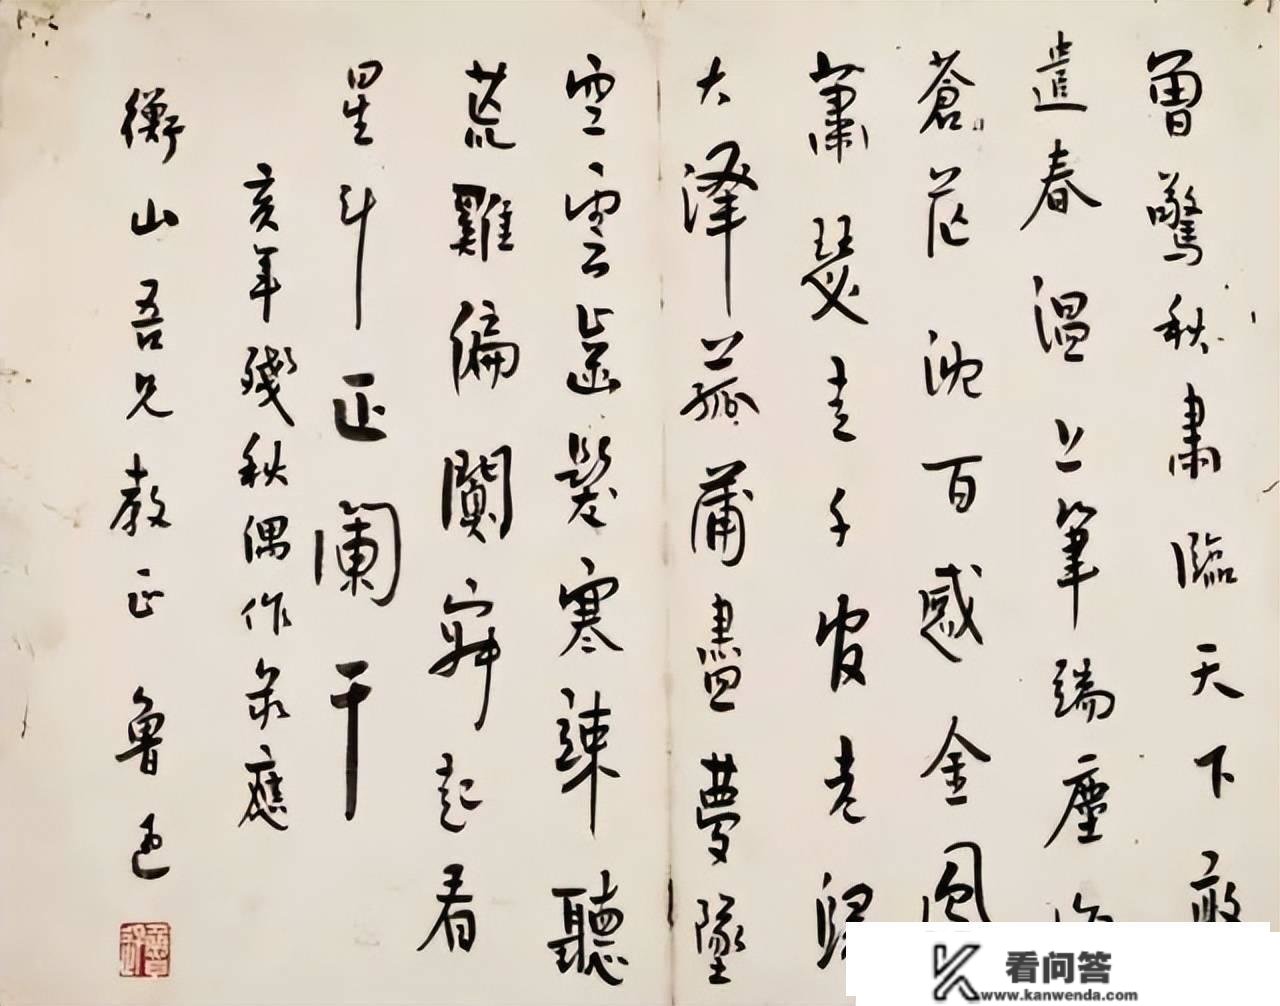 曾驚秋肅臨天下敢
遣春溫上筆端塵海
蒼茫沈百感金風
蕭瑟走千官老歸
大澤菰蒲盡夢墜
空雲齒髮寒竦聽
荒雞偏闃寂起看
星斗正闌干
亥年殘秋偶作錄應
衡山吾兄教正 魯迅
看问答
www.kanwenda.com